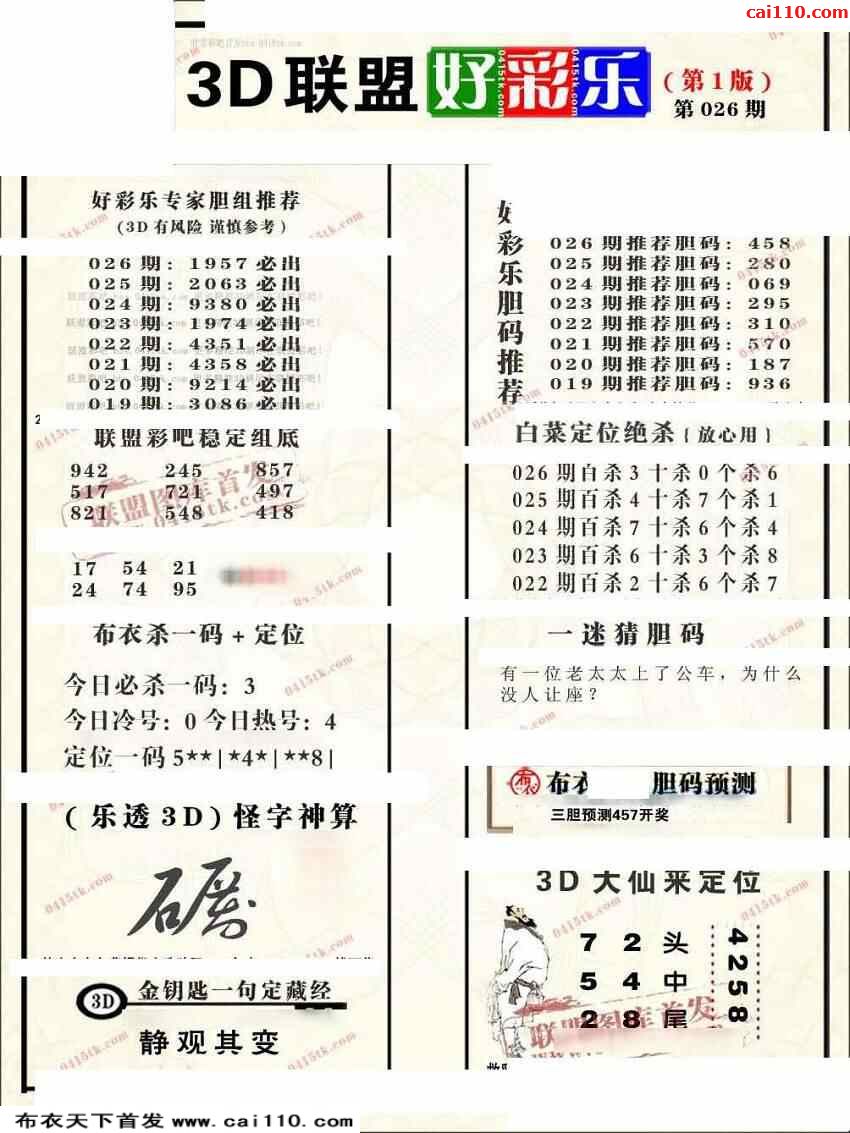 cai110.com
3D联盟好彩乐
(第1版)
第026期
好彩乐专家胆组推荐
(3D有风险 谨慎参考)
026期: 1957必出
025期: 2063必出
024期: 9380必出
023期: 1974必出
022期: 4351必出
021期: 4358必出
020期: 9214必出
019期: 3086必出
联盟彩吧稳定组底
942 245 857
517 721 497
821 548 418
17 54 21
24 74 95
布衣杀一码+定位
今日必杀一码: 3
今日冷号: 0 今日热号: 4
定位一码 5**|*4*|**8|
(乐透3D)怪字神算
3D
金钥匙一句定藏经
静观其变
好彩乐胆码推荐
026期推荐胆码: 458
025期推荐胆码: 280
024期推荐胆码: 069
023期推荐胆码: 295
022期推荐胆码: 310
021期推荐胆码: 570
020期推荐胆码: 187
019期推荐胆码: 936
白菜定位绝杀(放心用)
026期白杀3十杀0个杀6
025期百杀4十杀7个杀1
024期百杀7十杀6个杀4
023期百杀6十杀3个杀8
022期百杀2十杀6个杀7
一迷猜胆码
有一位老太太上了公车，为什么
没人让座？
布衣 胆码预测
三胆预测457开奖
3D大仙来定位
7 2 头
5 4 中
2 8 尾
4258
联盟图库首发
0415tk.com
布衣天下首发 www.cai110.com